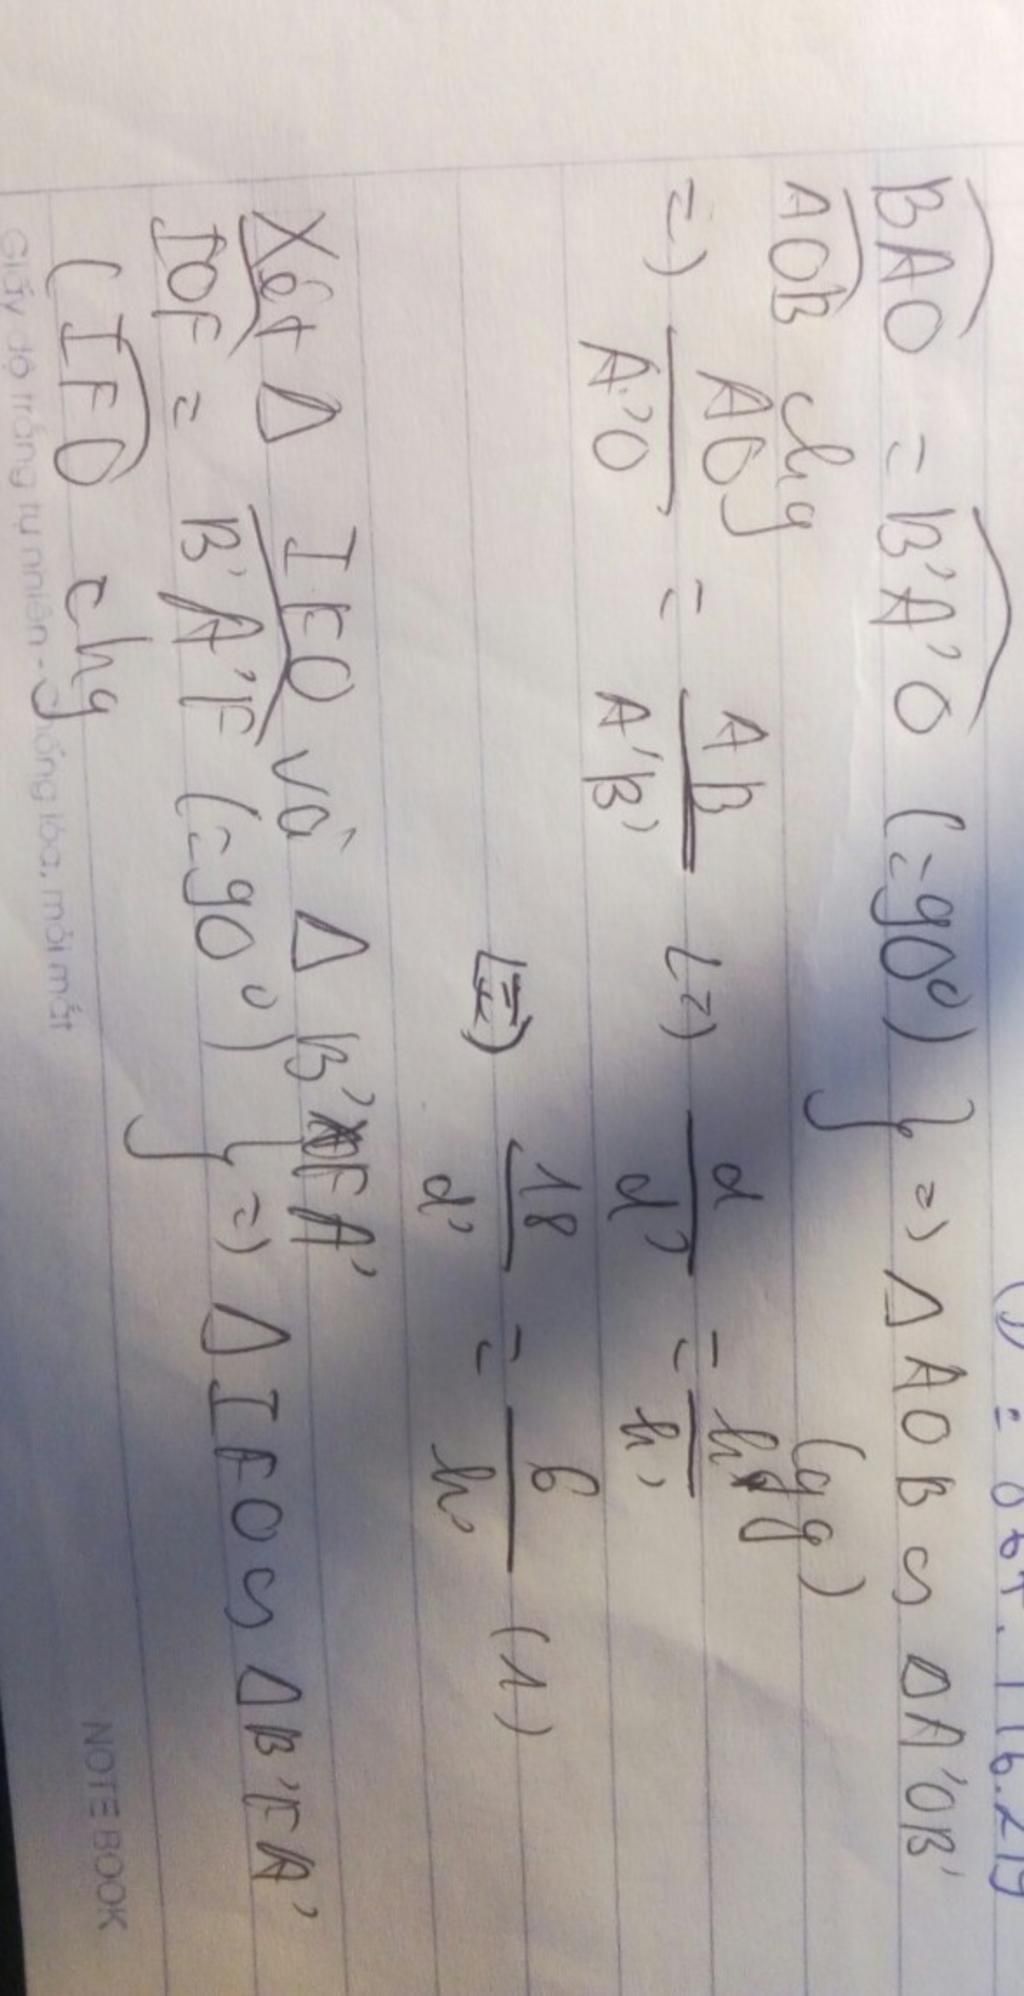 BAO = B'A'O (=90°) } => Δ AOB ∽ Δ A'OB'
AOB chg (gg)
=> AO/A'O = AB/A'B' (=) d/d' = h/h'
(=) 18/d' = 6/h' (1)
Xét Δ IFO và Δ B'FA'
IOF = B'A'F (=90°) } => Δ IFO ∽ Δ B'FA'
(IFO chg
Giấy độ trắng tự nhiên - chống lóa, mỏi mắt NOTEBOOK